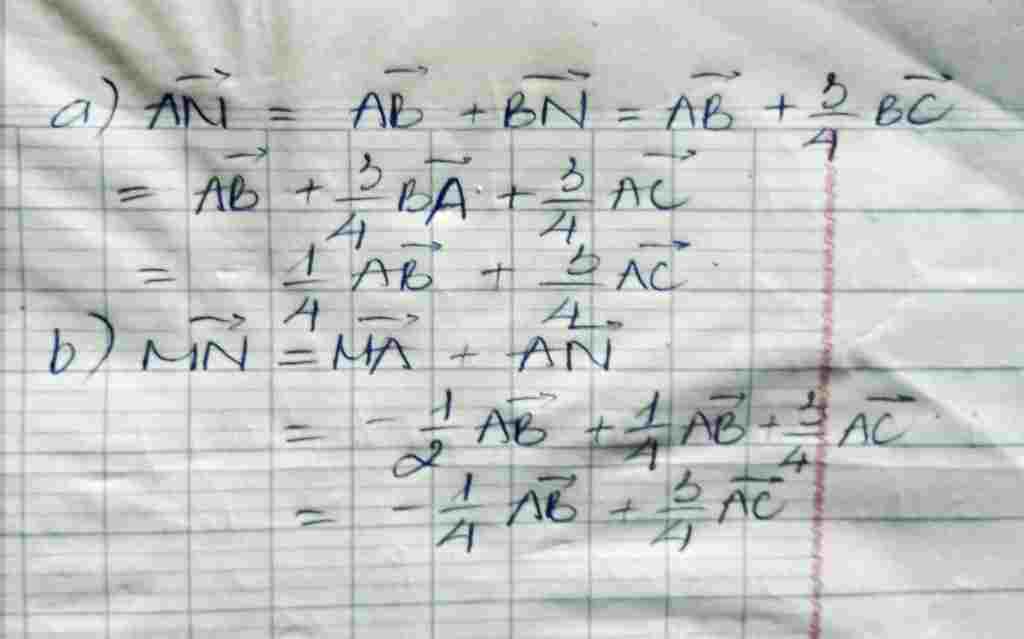 a) \overrightarrow{AN} = \overrightarrow{AB} + \overrightarrow{BN} = \overrightarrow{AB} + \frac{3}{4} \overrightarrow{BC}
= \overrightarrow{AB} + \frac{3}{4} \overrightarrow{BA} + \frac{3}{4} \overrightarrow{AC}
= \frac{1}{4} \overrightarrow{AB} + \frac{3}{4} \overrightarrow{AC}
b) \overrightarrow{MN} = \overrightarrow{MA} + \overrightarrow{AN}
= -\frac{1}{2} \overrightarrow{AB} + \frac{1}{4} \overrightarrow{AB} + \frac{3}{4} \overrightarrow{AC}
= -\frac{1}{4} \overrightarrow{AB} + \frac{3}{4} \overrightarrow{AC}